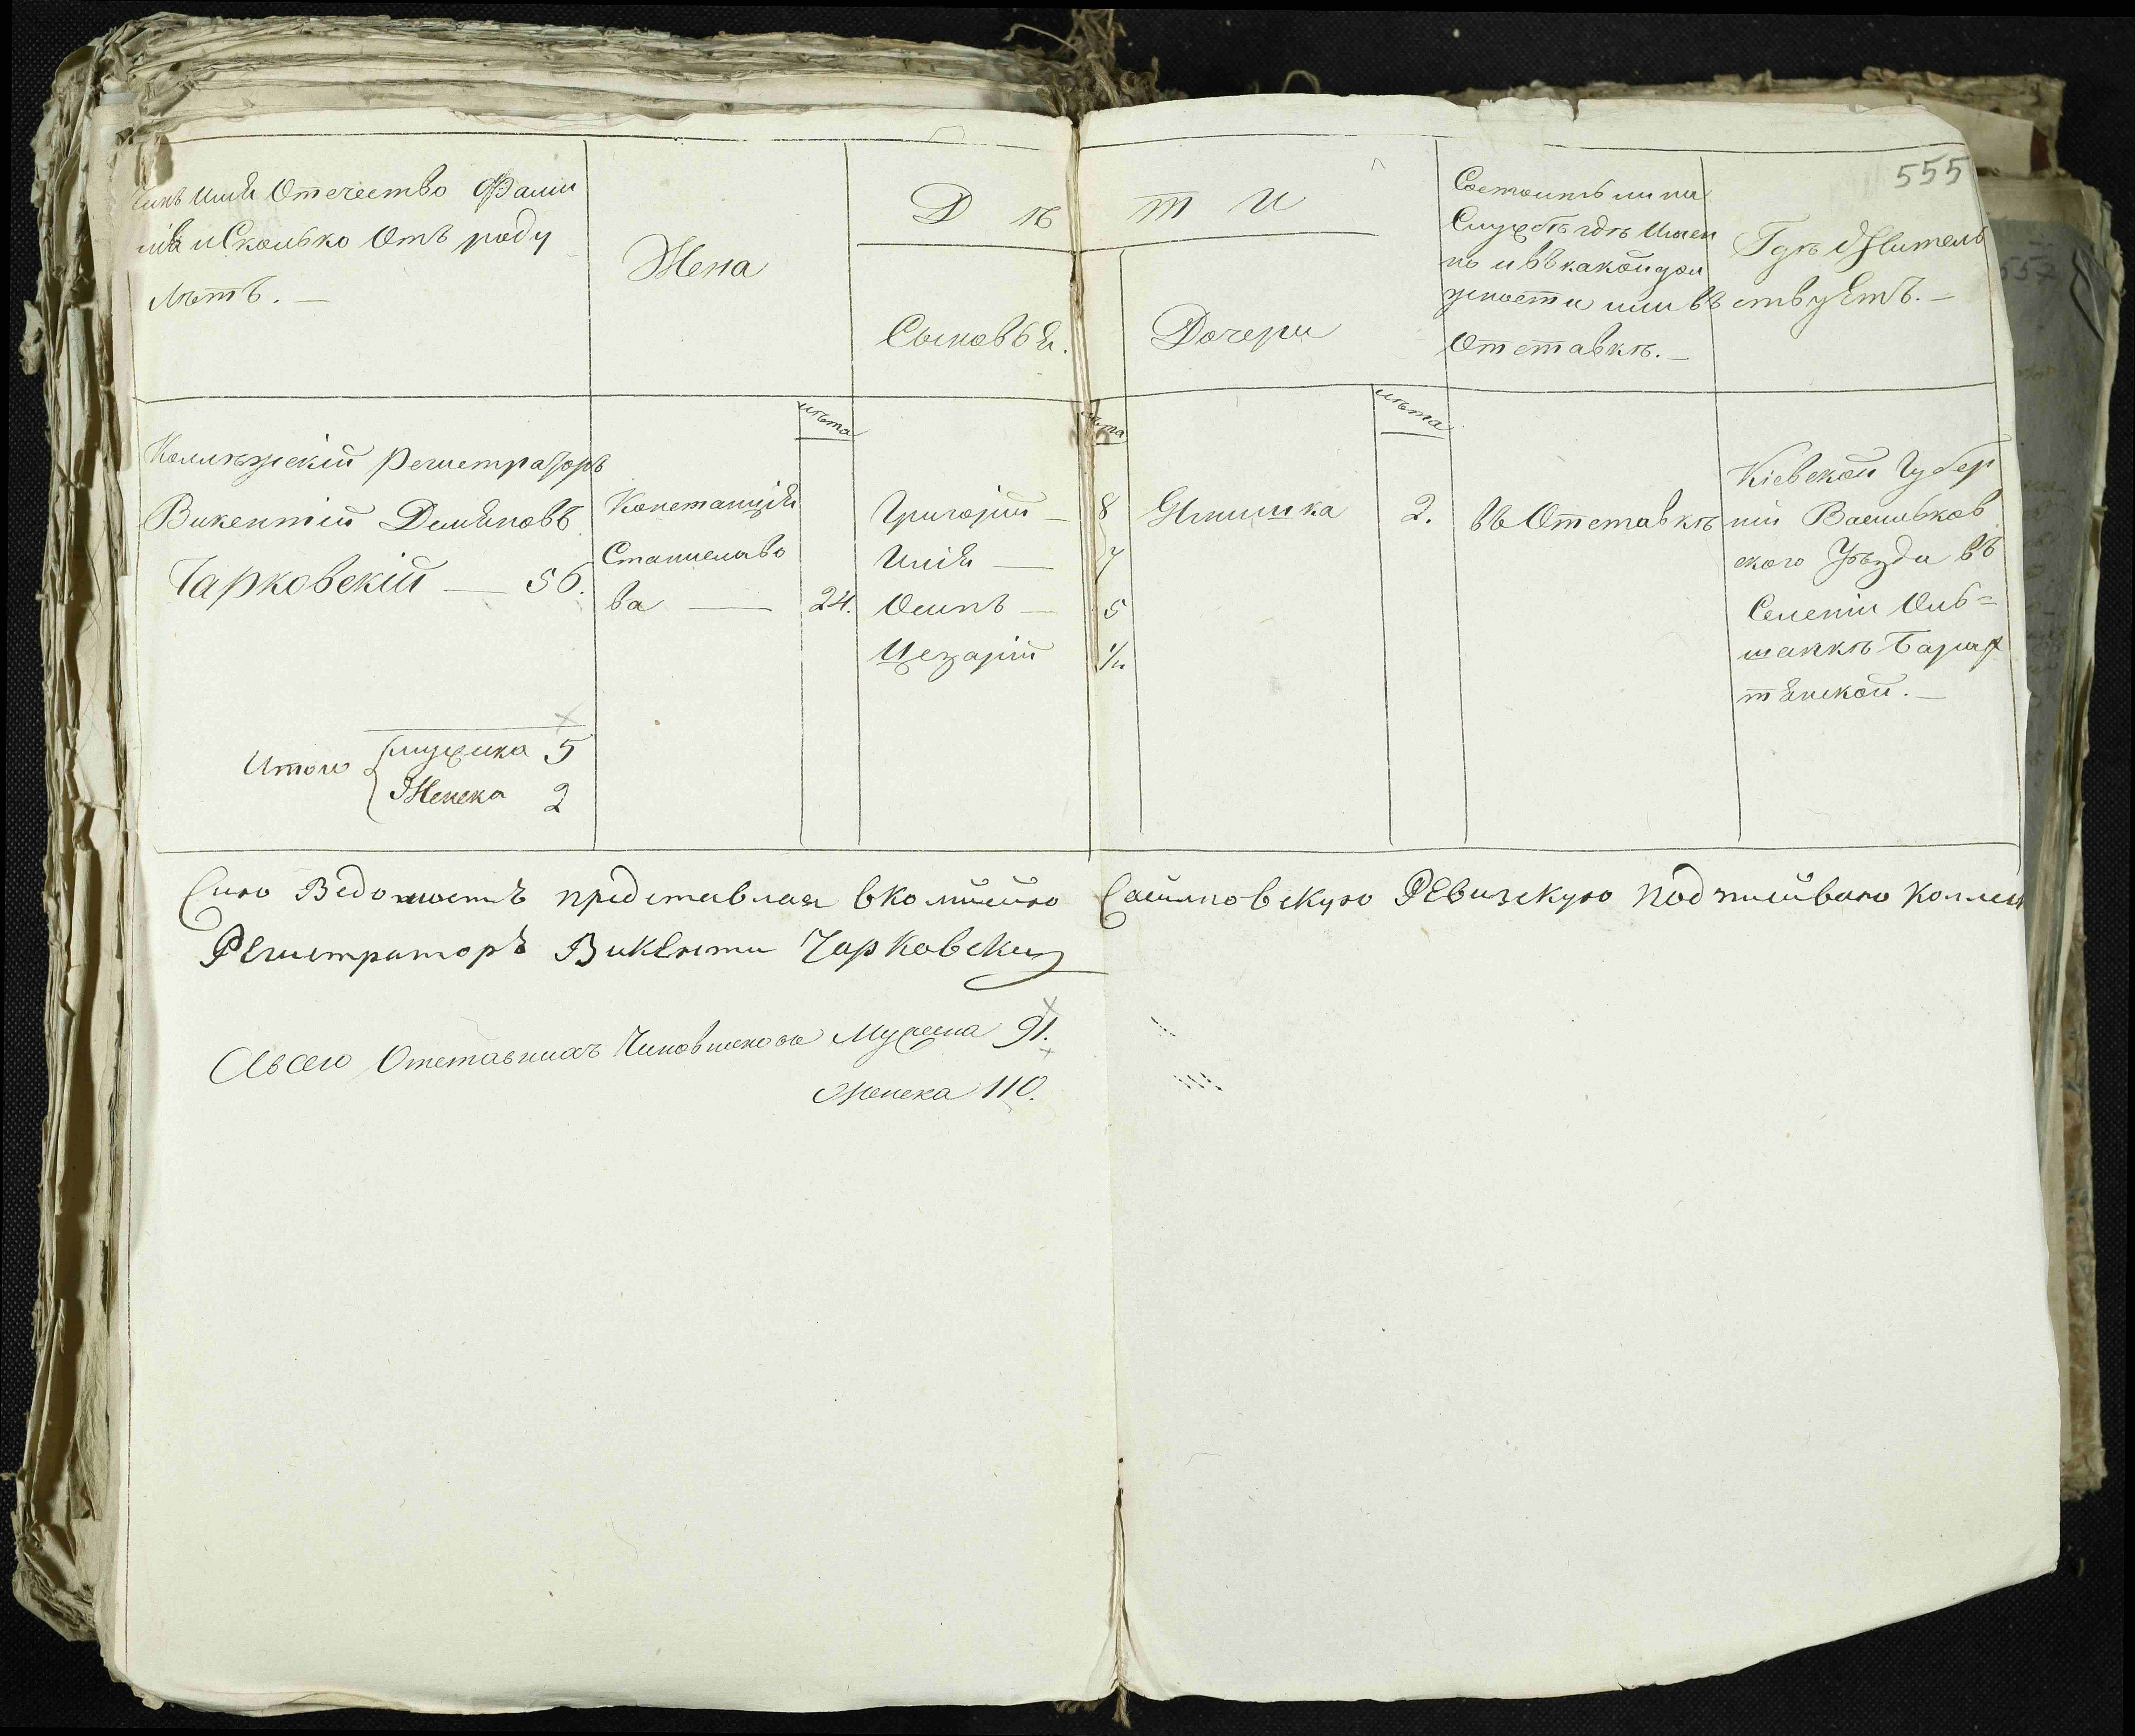 555
Чинъ Имя Отечество Фами
лія и Сколько Отъ роду
лѣтъ. —
Жена
Дѣти
Сыновья.
Дочери
Состоитъ ли на
Службѣ гдѣ Имен
но и въ какой дол
жности или въ
Отставкѣ. —
Гдѣ Жител
ствуетъ. —
лѣта
лѣта
лѣта
Колежскій Регистраторъ
Викентій Демяновъ
Чарковскій — 56.
Констанція
Станиславо
ва — 24.
Григорій — 8
Илія — 7
Осипъ — 5
Цезарій 1/2
Ягнишка 2.
въ Отставкѣ
Кіевской Губер
ніи Васильков
ского Уѣзда въ
Селеніи Оль=
шанкѣ Барах
тянской. —
Итого
мужска 5
Женска 2
Сию Ведомость представляя вкомисию Ревизскую подписываю Коллеж
Регистраторъ Викенти Чарковски
Всего Отставныхъ Чиновниковъ Мужска 91.
Женска 110.
557